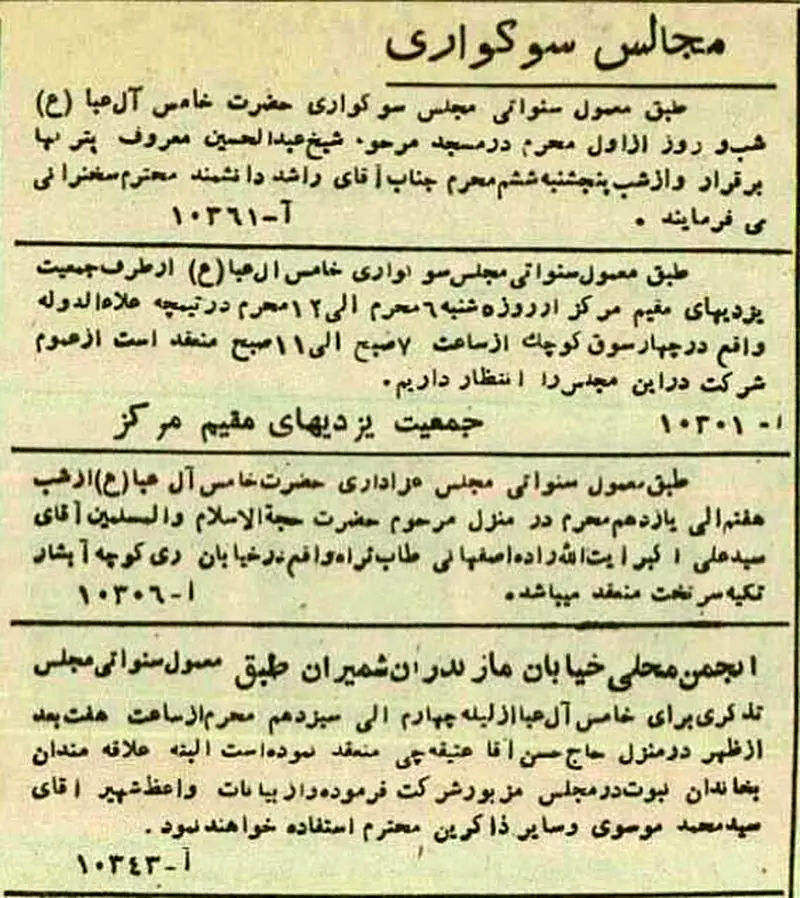 مجالس سوکواری
طبق معمول سنواتی مجلس سوکواری حضرت خامس آل عبا (ع)
شب و روز از اول محرم در مسجد مرحوم شیخ عبدالحسین معروف بتر نها
برقرار و از شب پنجشنبه ششم محرم جناب آقای راشد دانشمند محترم سخنرانی
می فرمایند . آ-۱۰۳۶۱
طبق معمول سنواتی مجلس سو نواری خامس ال عبا (ع) از طرف جمعیت
یزدیهای مقیم مرکز از روز ۵ شنبه ۶ محرم الی ۱۲ محرم در تیمچه علاءالدوله
واقع در چهارسوق کوچك از ساعت ۷ صبح الی ۱۱ صبح منعقد است از عموم
شرکت در این مجلس را انتظار داریم.
ا- ۱۰۳۰۱ جمعیت یزدیهای مقیم مرکز
طبق معمول سنواتی مجلس عزاداری حضرت خامس آل عبا (ع) از شب
هفتم الی یازدهم محرم در منزل مرحوم حضرت حجة الاسلام والمسلمین آقای
سید علی اکبر آیت الله زاده اصفهانی طاب ثراه واقع در خیابان ری کوچه آبشار
تکیه سر تخت منعقد میباشد. ا-۱۰۳۰۶
انجمن محلی خیابان مازندران شمیران طبق معمول سنواتی مجلس
تذکری برای خامس آل عبا از لیله چهارم الی سیزدهم محرم از ساعت هفت بعد
از ظهر در منزل حاج حسن آقا عتیقه چی منعقد نموده است البته علاقه مندان
بخاندان نبوت در مجلس مزبور شرکت فرموده و از بیانات واعظ شهیر آقای
سید محمد موسوی و سایر ذاکرین محترم استفاده خواهند نمود .
آ-۱۰۳٤۳